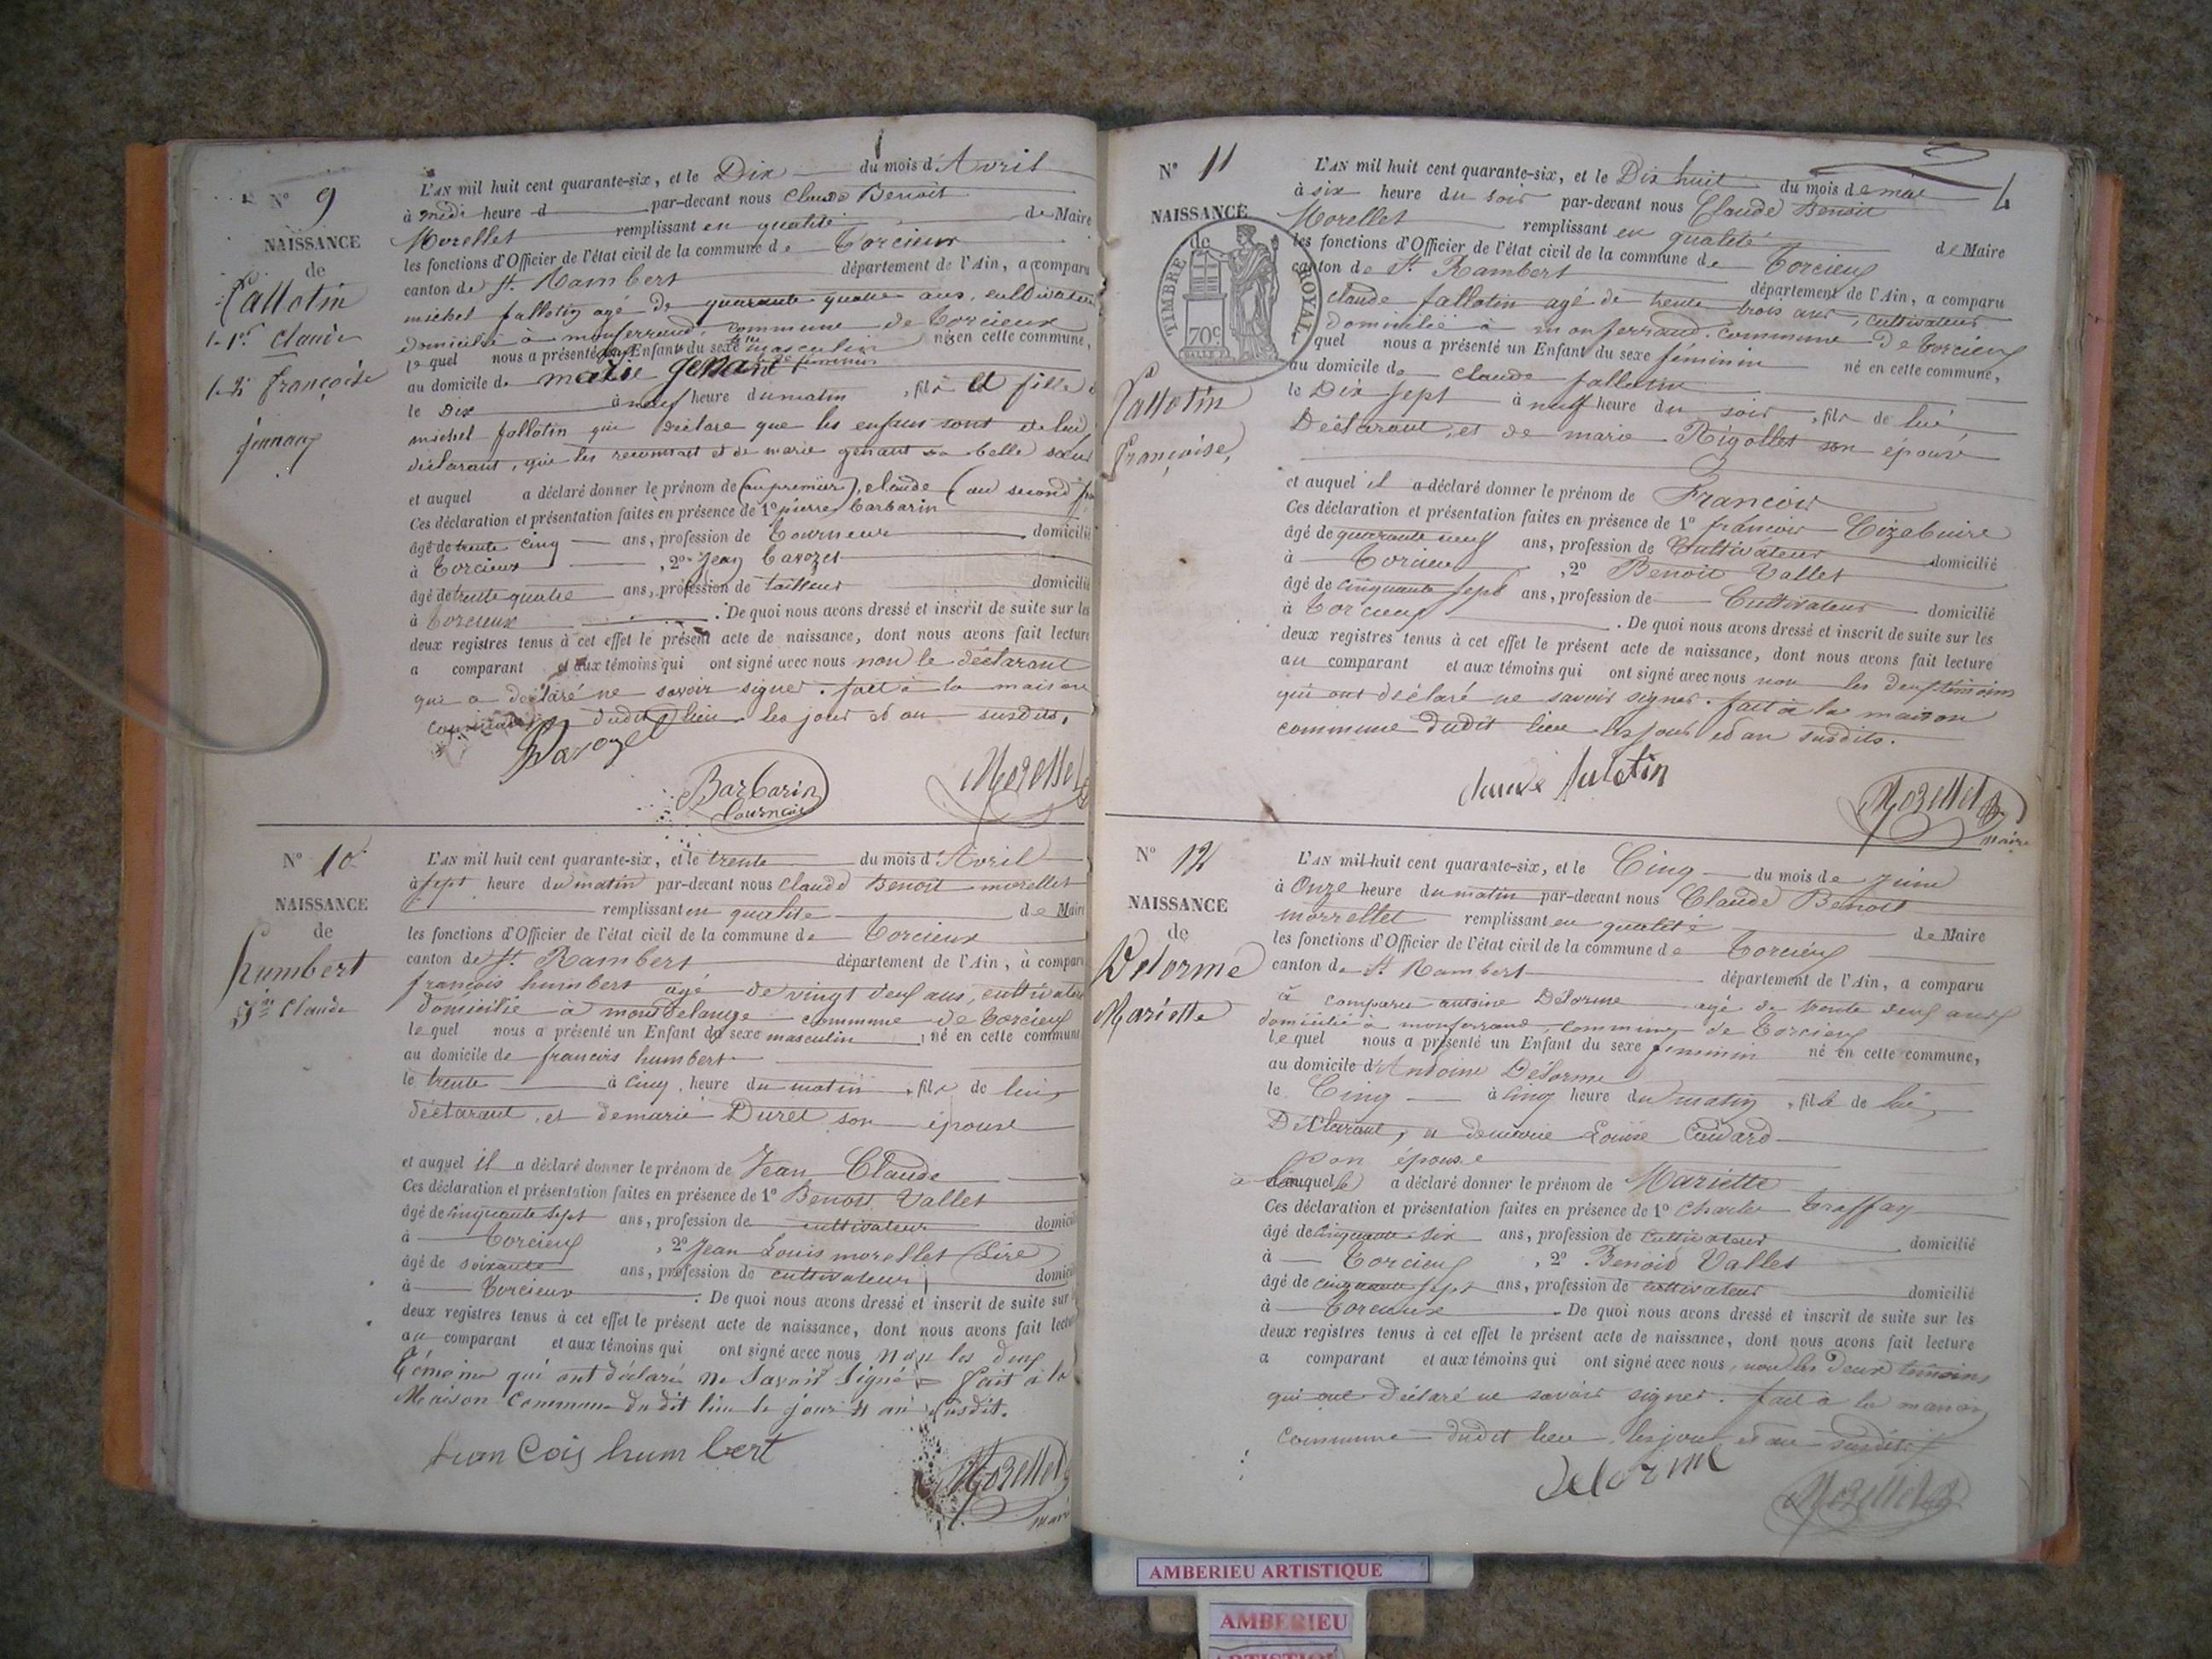 N° 9
NAISSANCE
de
fallotin
le 1er Claude
le 2e françoise
jumeaux
L'AN mil huit cent quarante-six, et le Dix du mois d'Avril
à midi heure d par-devant nous Claude Benoit
Morellet remplissant en qualité de Maire
les fonctions d'Officier de l'état civil de la commune de Torcieux
canton de St. Rambert département de l'Ain, a comparu
michel fallotin agé de quarante quatre ans, cultivateur
domicilié à monferrand, commune de Torcieux
le quel nous a présenté Enfants du sexe masculin nés en cette commune,
au domicile de marie genant
le Dix à neuf heure du matin, fils et fille
michel fallotin qui déclare que les enfans sont de lui
déclarant, qui les reconnait et de marie genant sa belle sœur
et auquel a déclaré donner le prénom de (au premier), claude (au second
Ces déclaration et présentation faites en présence de 1° pierre Barbarin
âgé de trente cinq ans, profession de Tourneur domicilié
à Torcieux, 2° Jean Cavozet
âgé de trente quatre ans, profession de tailleur domicilié
à Torcieux. De quoi nous avons dressé et inscrit de suite sur les
deux registres tenus à cet effet le présent acte de naissance, dont nous avons fait lecture
a comparant et aux témoins qui ont signé avec nous non le déclarant
qui a déclaré ne savoir signer. fait à la maison
commune dudit lieu les jour et an susdits.
Barbarin
tourneur
Morellet
N° 10
NAISSANCE
de
humbert
Jn Claude
L'AN mil huit cent quarante-six, et le trente du mois d'Avril
à sept heure du matin par-devant nous Claude Benoit morellet
remplissant en qualité de Maire
les fonctions d'Officier de l'état civil de la commune de Torcieux
canton de St. Rambert département de l'Ain, à comparu
françois humbert agé de vingt deux ans, cultivateur
domicilié à montdelange commune de Torcieux
le quel nous a présenté un Enfant du sexe masculin, né en cette commune
au domicile de francois humbert
le trente à cinq heure du matin, fils de lui
déclarant, et de marie Duret son épouse
et auquel il a déclaré donner le prénom de Jean Claude
Ces déclaration et présentation faites en présence de 1° Benoit Vallet
âgé de cinquante sept ans, profession de cultivateur domicilié
à Torcieux, 2° Jean Louis morellet
âgé de soixante ans, profession de cultivateur domicilié
à Torcieux. De quoi nous avons dressé et inscrit de suite sur
deux registres tenus à cet effet le présent acte de naissance, dont nous avons fait lecture
au comparant et aux témoins qui ont signé avec nous non les deux
témoins qui ont déclaré ne savoir signé fait à la
Maison Commune du dit lieu le jour et an susdit.
francois humbert
Morellet
maire
N° 11
NAISSANCE
de
TIMBRE ROYAL
70c
fallotin
françoise,
L'AN mil huit cent quarante-six, et le Dix huit du mois de mai
à six heure du soir par-devant nous Claude Benoit
Morellet remplissant en qualité de Maire
les fonctions d'Officier de l'état civil de la commune de Torcieux
canton de St. Rambert département de l'Ain, a comparu
claude fallotin agé de trente trois ans, cultivateur
domicilié à monferrand. commune de Torcieux
quel nous a présenté un Enfant du sexe féminin né en cette commune,
au domicile de claude fallotin
le Dix sept à neuf heure du soir, fils de lui
Déclarant, et de marie Rigollet son épouse
et auquel il a déclaré donner le prénom de Francoise
Ces déclaration et présentation faites en présence de 1° françois Tizabuire
âgé de quarante neuf ans, profession de Cultivateur domicilié
à Torcieux, 2° Benoit Vallet
âgé de cinquante sept ans, profession de Cultivateur domicilié
à Torcieux. De quoi nous avons dressé et inscrit de suite sur les
deux registres tenus à cet effet le présent acte de naissance, dont nous avons fait lecture
au comparant et aux témoins qui ont signé avec nous non les deux témoins
qui ont déclaré ne savoir signer. fait à la maison
commune dudit lieu les jour et an susdits.
claude falotin
Morellet
maire
N° 12
NAISSANCE
de
Delorme
Mariette
L'AN mil huit cent quarante-six, et le Cinq du mois de juin
à Onze heure du matin par-devant nous Claude Benoit
morrellet remplissant en qualité de Maire
les fonctions d'Officier de l'état civil de la commune de Torcieux
canton de St. Rambert département de l'Ain, a comparu
à comparu antoine Delorme agé de trente deux ans
domicilié à monferrand, commune de Torcieux
le quel nous a présenté un Enfant du sexe feminin né en cette commune,
au domicile d'Antoine Delorme
le Cinq à cinq heure du matin, fille de lui
Déclarant, et de marie Louise
son épouse
à laquelle a déclaré donner le prénom de Mariette
Ces déclaration et présentation faites en présence de 1° Charle Traffay
âgé de cinquante six ans, profession de cultivateur domicilié
à Torcieux, 2° Benoit Vallet
âgé de cinquante sept ans, profession de cultivateur domicilié
à Torcieux. De quoi nous avons dressé et inscrit de suite sur les
deux registres tenus à cet effet le présent acte de naissance, dont nous avons fait lecture
a comparant et aux témoins qui ont signé avec nous, non les deux témoins
qui ont déclaré ne savoir signer. fait à la maison
commune dudit lieu, les jour et an susdits
Delorme
Morellet
AMBERIEU ARTISTIQUE
AMBERIEU
ARTISTIQUE